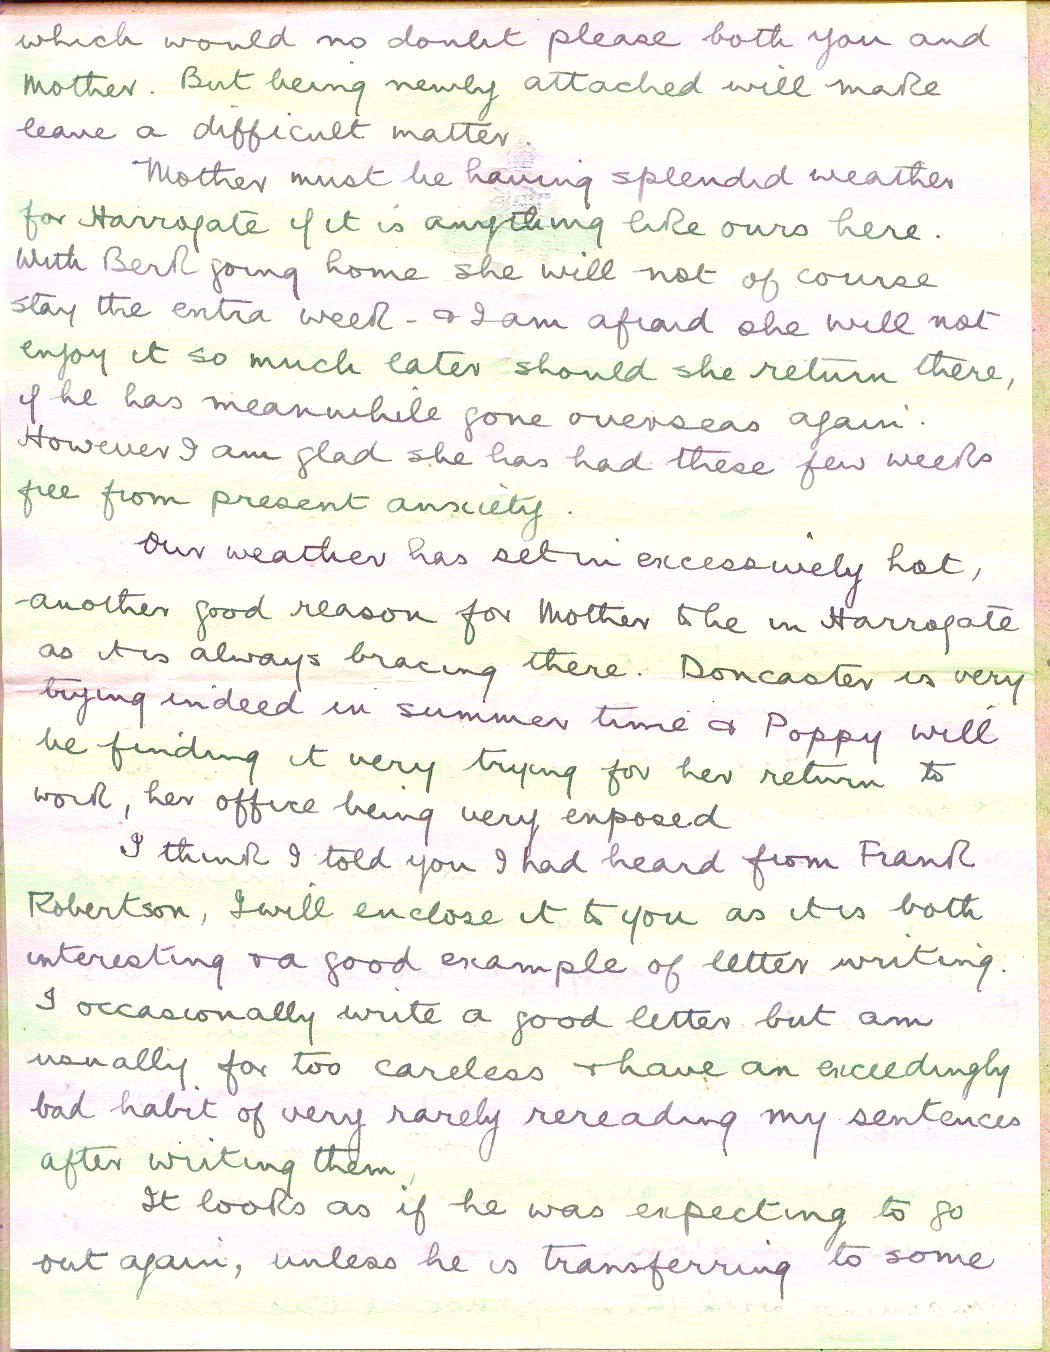 which would no doubt please both you and
Mother. But being newly attached will make
leave a difficult matter.
Mother must be having splendid weather
for Harrogate if it is anything like ours here.
With Berk going home she will not of course
stay the extra week - & I am afraid she will not
enjoy it so much later should she return there,
if he has meanwhile gone overseas again.
However I am glad she has had these few weeks
free from present anxiety.
Our weather has set in excessively hot,
another good reason for Mother to be in Harrogate
as it is always bracing there. Doncaster is very
trying indeed in summer time & Poppy will
be finding it very trying for her return to
work, her office being very exposed
I think I told you I had heard from Frank
Robertson, I will enclose it to you as it is both
interesting & a good example of letter writing.
I occasionally write a good letter but am
usually far too careless & have an exceedingly
bad habit of very rarely rereading my sentences
after writing them,
It looks as if he was expecting to go
out again, unless he is transferring to some